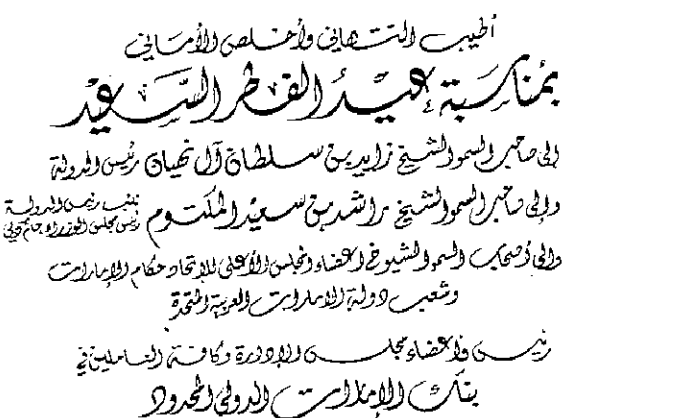 أطيب التهاني وأخلص الأماني
بمناسبة عيد الفطر السعيد
إلى صاحب السمو الشيخ زايد بن سلطان آل نهيان رئيس الدولة
وإلى صاحب السمو الشيخ راشد بن سعيد المكتوم نائب رئيس الدولة
رئيس مجلس الوزراء حاكم دبي
وإلى أصحاب السمو الشيوخ أعضاء المجلس الأعلى للاتحاد حكام الإمارات
وشعب دولة الإمارات العربية المتحدة
رئيس وأعضاء مجلس الإدارة وكافة العاملين في
بنك الإمارات الدولي المحدود